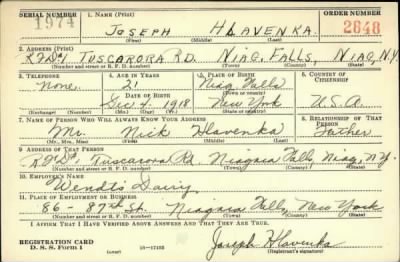 SERIAL NUMBER 1. Name (Print) ORDER NUMBER
1974 JOSEPH HLAVENKA. 2648
(First) (Middle) (Last)
2. ADDRESS (Print)
RFD#1 TUSCARORA RD. NIAG. FALLS, NIAG, N.Y.
(Number and street or R. F. D. number) (Town) (County) (State)
3. TELEPHONE 4. AGE IN YEARS 5. PLACE OF BIRTH 6. COUNTRY OF CITIZENSHIP
None. 21 Niag. Falls
DATE OF BIRTH (Town or county)
Dec. 4, 1918 New York U.S.A.
(Exchange) (Number) (Mo.) (Day) (Yr.) (State or country)
7. NAME OF PERSON WHO WILL ALWAYS KNOW YOUR ADDRESS 8. RELATIONSHIP OF THAT PERSON
Mr. Nick Hlavenka Father
(Mr., Mrs., Miss) (First) (Middle) (Last)
9. ADDRESS OF THAT PERSON
RFD#1 Tuscarora Rd. Niagara Falls, Niag, N.Y.
(Number and street or R. F. D. number) (Town) (County) (State)
10. EMPLOYER'S NAME
Wendts Dairy
11. PLACE OF EMPLOYMENT OR BUSINESS
86 - 87th St. Niagara Falls, New York
(Number and street or R. F. D. number) (Town) (County) (State)
I AFFIRM THAT I HAVE VERIFIED ABOVE ANSWERS AND THAT THEY ARE TRUE.
REGISTRATION CARD
D. S. S. Form 1 16-17105 Joseph Hlavenka
(Registrant's signature)